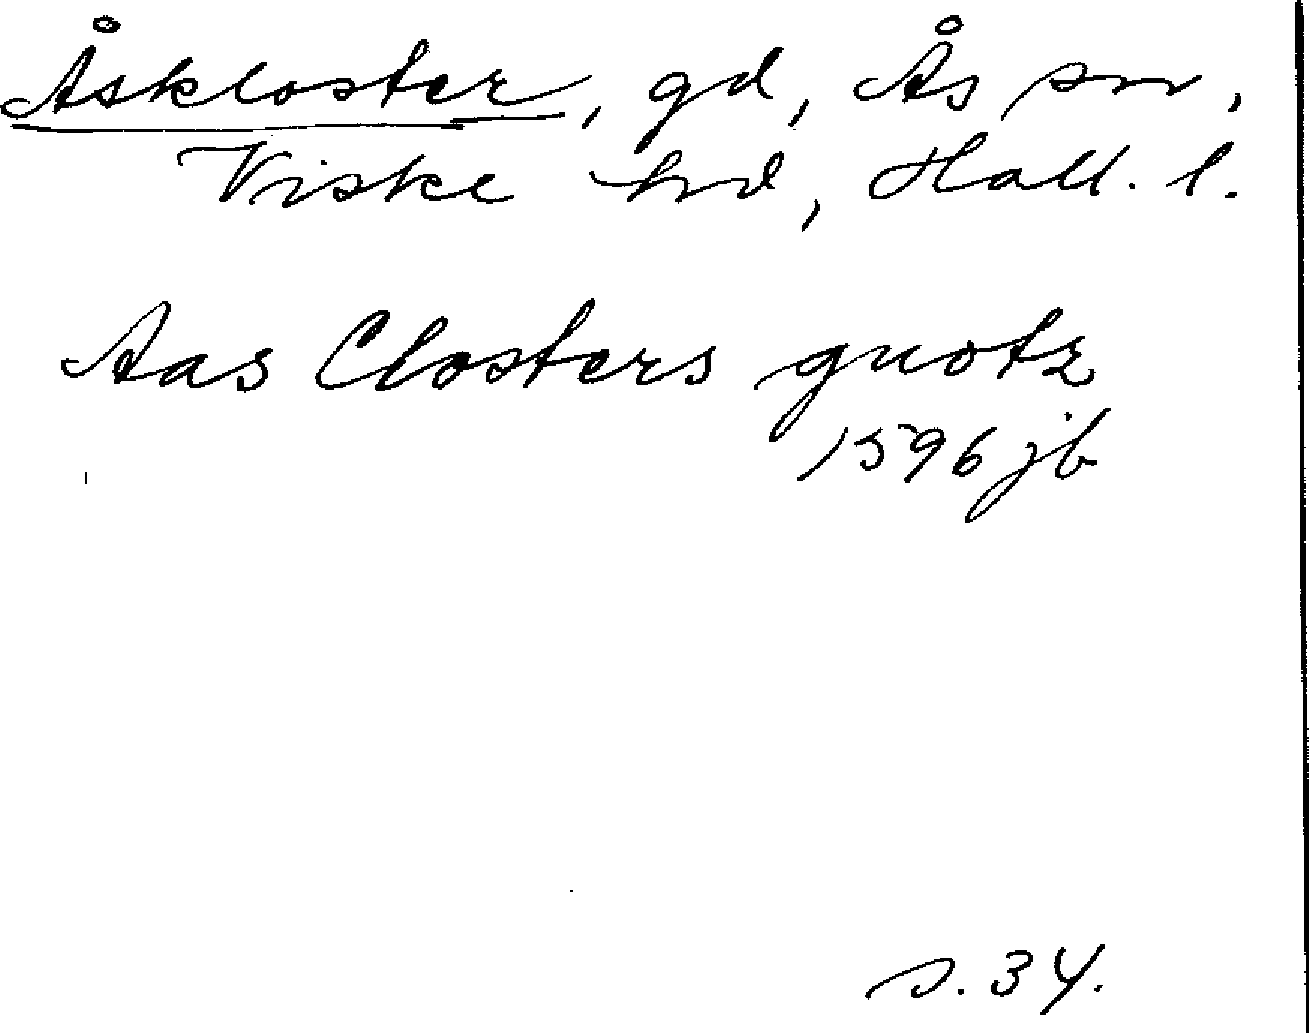 Åskloster, gd, Ås sn,
Viske hd, Hall. l.
Aas Closters guotz
1596 jb
s. 34.